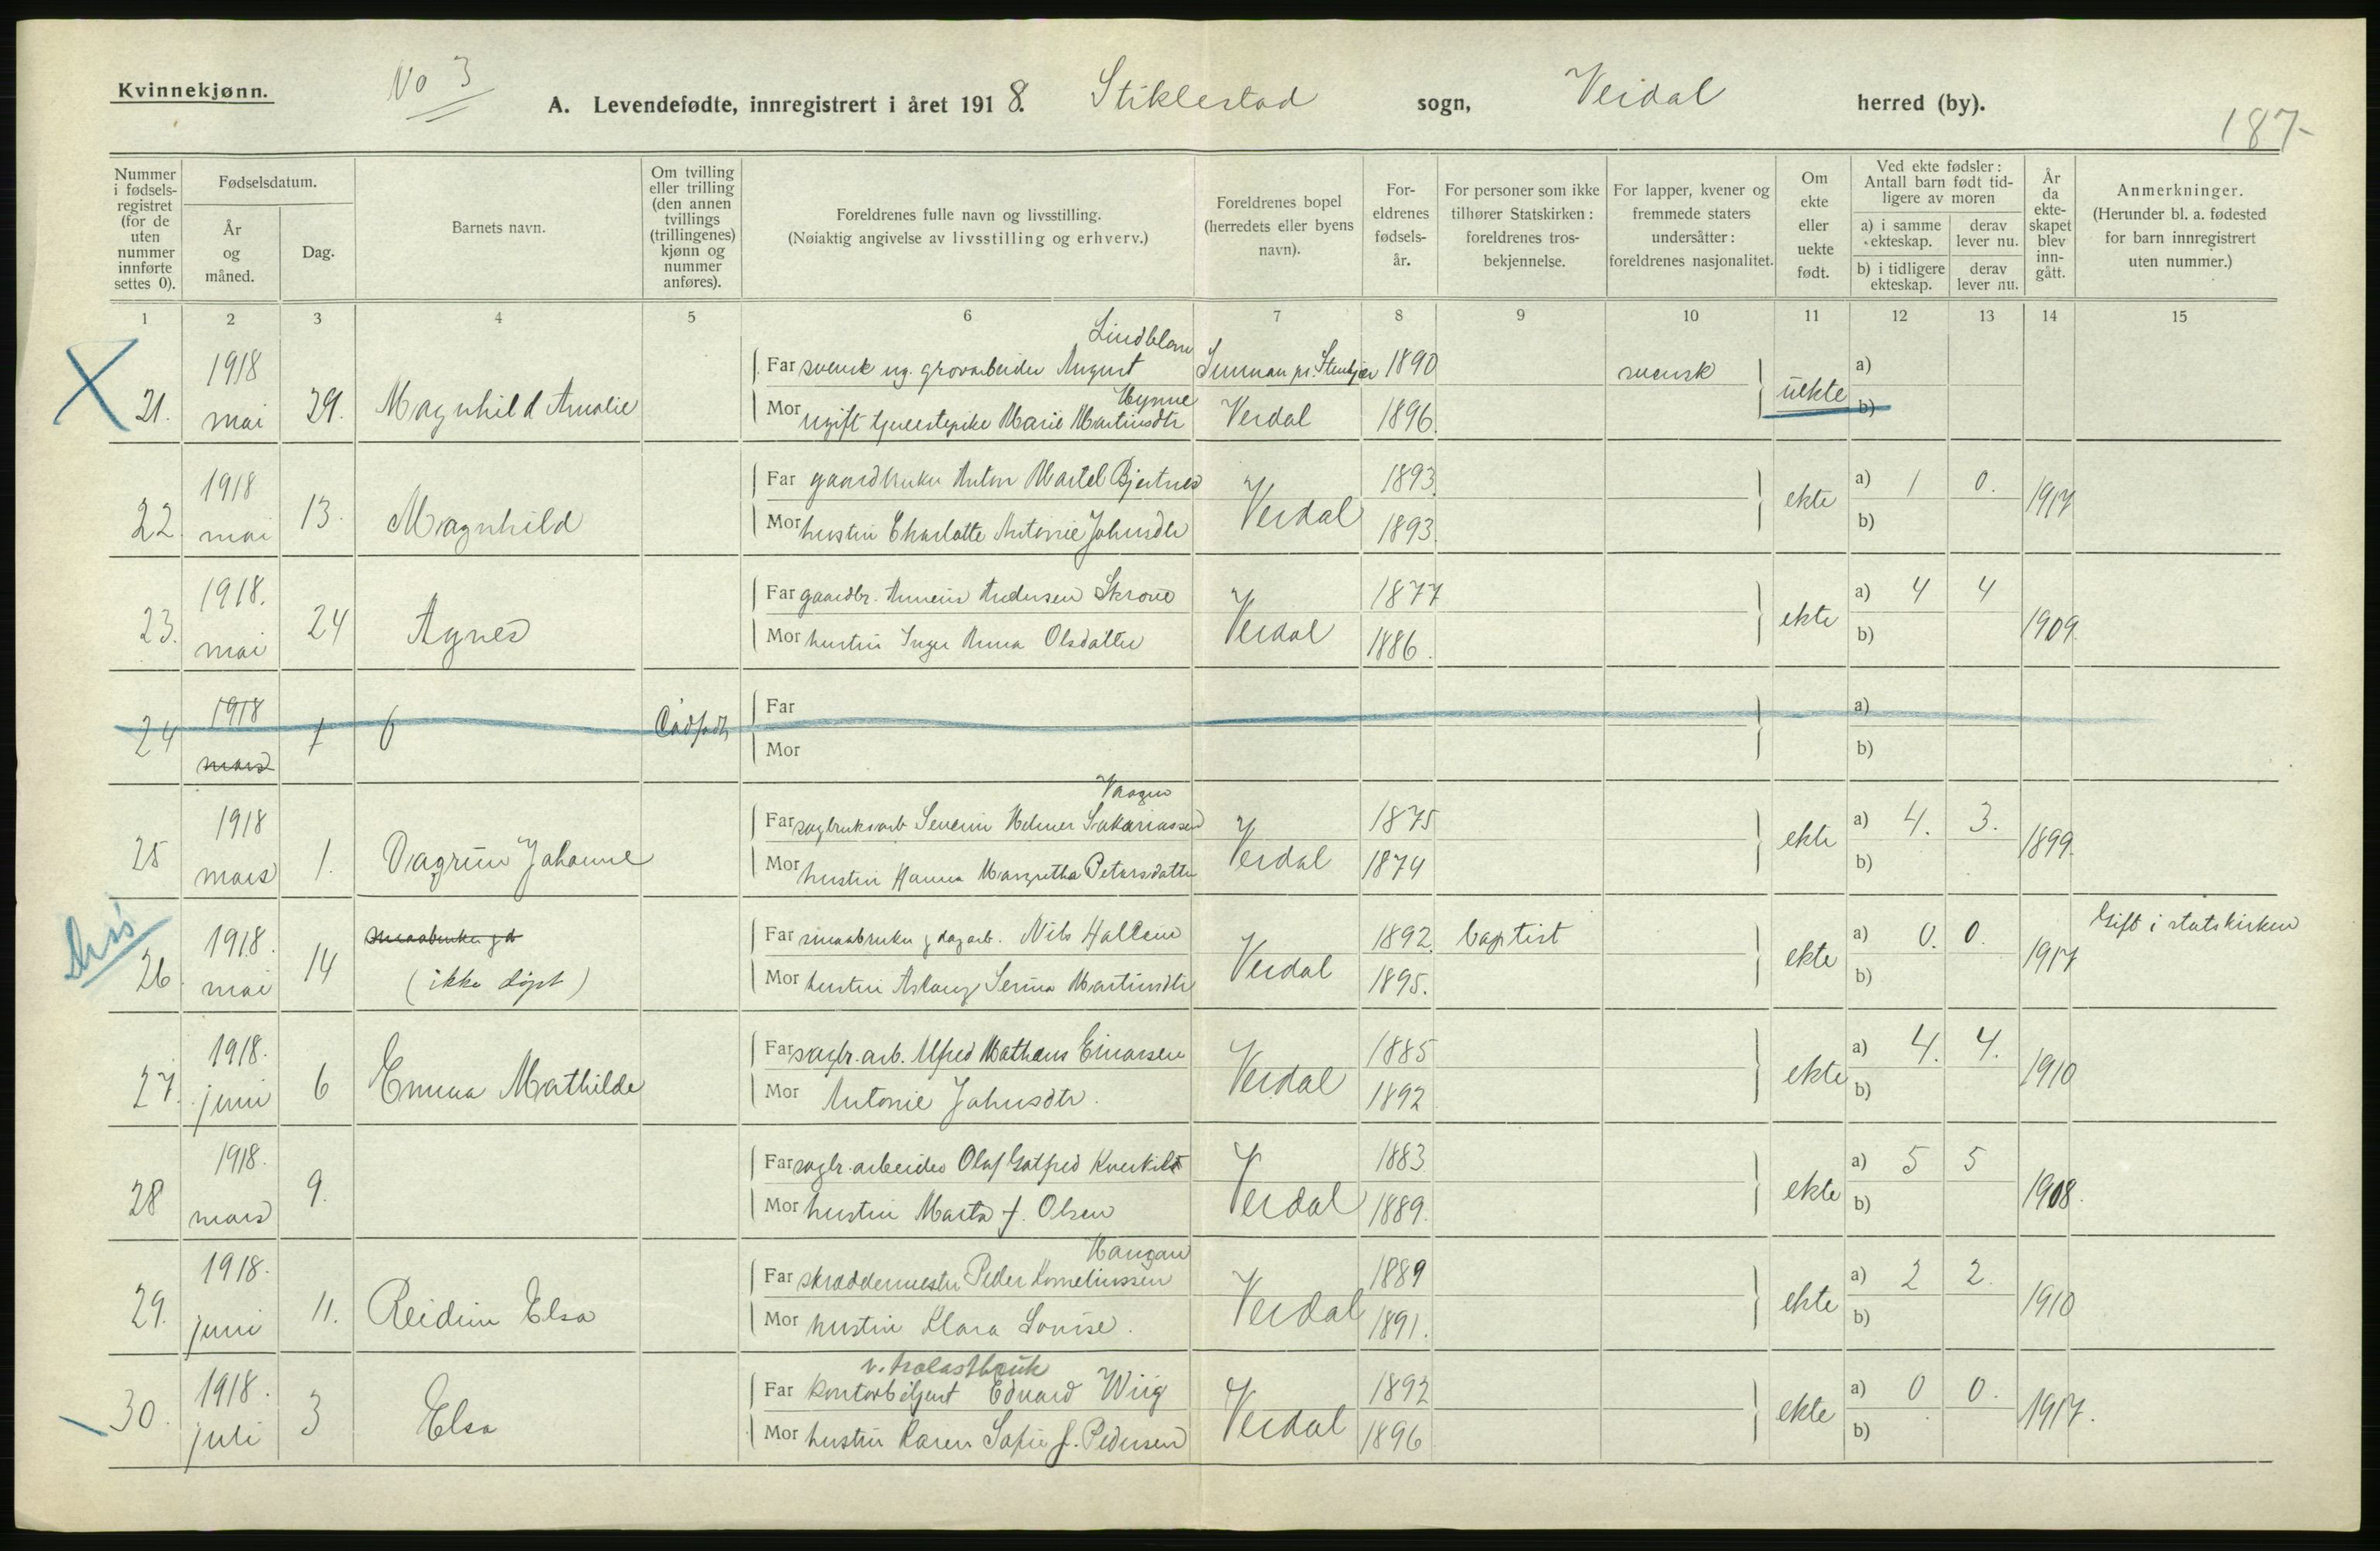 Kvinnekjønn.
No 3
A. Levendefødte, innregistrert i året 1918. Stiklestad sogn, Verdal herred (by).
187-
Nummer i fødsels-registret (for de uten nummer innførte settes 0).
Fødselsdatum.
År og måned.
Dag.
Barnets navn.
Om tvilling eller trilling (den annen tvillings (trillingenes) kjønn og nummer anføres).
Foreldrenes fulle navn og livsstilling.
(Nøiaktig angivelse av livsstilling og erhverv.)
Foreldrenes bopel (herredets eller byens navn).
For-eldrenes fødsels-år.
For personer som ikke tilhører Statskirken: foreldrenes tros-bekjennelse.
For lapper, kvener og fremmede staters undersåtter: foreldrenes nasjonalitet.
Om ekte eller uekte født.
Ved ekte fødsler: Antall barn født tid-ligere av moren
a) i samme ekteskap.
derav lever nu.
b) i tidligere ekteskap.
derav lever nu.
År da ekte-skapet blev inn-gått.
Anmerkninger.
(Herunder bl. a. fødested for barn innregistrert uten nummer.)
1 2 3 4 5 6 7 8 9 10 11 12 13 14 15
Lindblom
1918 Far svensk ug. grovarbeider August 1890 svensk a)
Hynne
21. mai 29. Magnhild Amalie Mor ugift tjenestepike Marie Martinsdtr Verdal 1896. uekte b)
1918 Far gaardbruker Anton Martel Bjertnes 1893. a) 1 0.
22. mai 13. Magnhild Mor hustru Charlotte Antonie Johnsdtr Verdal 1893. ekte b) 1917
1918. Far gaardbr. Anneus Andersen Skrove 1877 a) 4 4
23. mai 24 Agnes Mor hustru Inger Anna Olsdatter Verdal 1886. ekte b) 1909.
1918 Far a)
24 mars 0 Mor b)
1918 Far sagbruksarb Severin Helmer Sakariassen 1875 a) 4. 3.
25 mars 1. Dagrun Johanne Mor hustru Hanna Margretha Petersdatter Verdal 1874 ekte b) 1899.
1918. smaabruker gd Far smaabruker g dagarb. Nils Hallem 1892. baptist a) 0. 0. Gift i statskirken
26. mai 14 (ikke døpt) Mor hustru Aslaug Serina Martinsdtr Verdal 1895. ekte b) 1917
1918. Far sagbr. arb. Alfred Mathæus Einarsen 1885 a) 4. 4.
27. juni 6 Emma Mathilde Mor Antonie Johnsdtr. Verdal 1892 ekte b) 1910
1918. Far sagbr. arbeider Olaf Gotfred Kverkild 1883 a) 5 5
28 mars 9. Mor hustru Marta f. Olsen Verdal 1889. ekte b) 1908.
Haugan
1918. Far skræddermester Peder Korneliussen 1889 a) 2 2.
29. juni 11. Reidun Elsa Mor hustru Klara Lovise. Verdal 1891. ekte b) 1910
1918. Far kontorbetjent Edvard Wiig 1892 a) 0 0.
30. juli 3 Elsa Mor hustru Karen Sofie f. Pedersen Verdal 1896 ekte b) 1917.